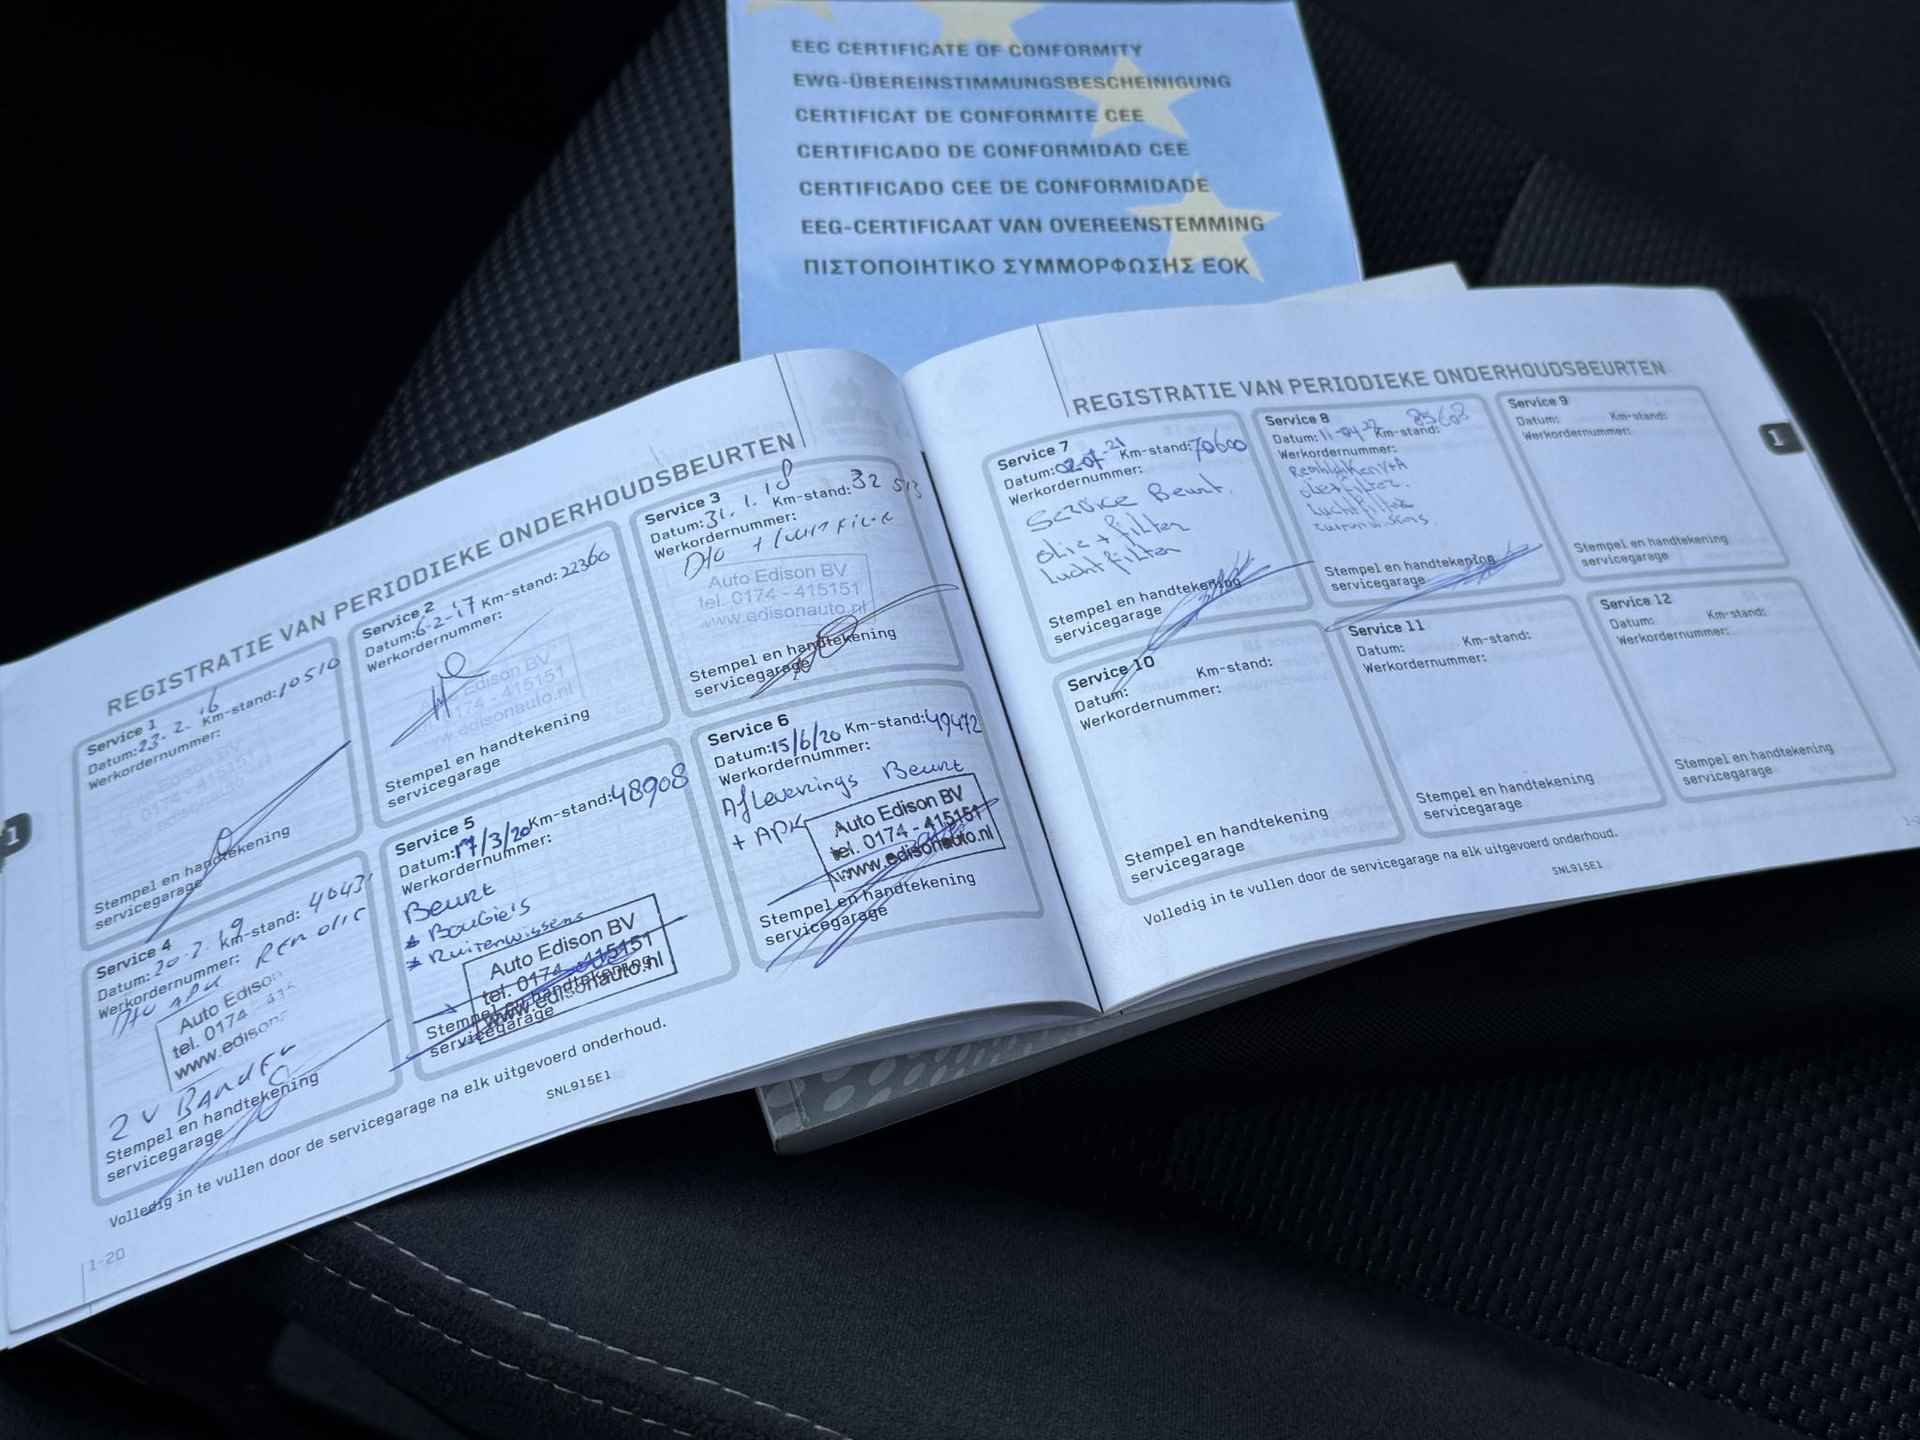 EEC CERTIFICATE OF CONFORMITY
EWG-ÜBEREINSTIMMUNGSBESCHEINIGUNG
CERTIFICAT DE CONFORMITE CEE
CERTIFICADO DE CONFORMIDAD CEE
CERTIFICADO CEE DE CONFORMIDADE
EEG-CERTIFICAAT VAN OVEREENSTEMMING
ΠΙΣΤΟΠΟΙΗΤΙΚΟ ΣΥΜΜΟΡΦΩΣΗΣ ΕΟΚ
REGISTRATIE VAN PERIODIEKE ONDERHOUDSBEURTEN
Service 1
Datum: 23.2.16 Km-stand: 10510
Werkordernummer:
Stempel en handtekening
servicegarage
Service 2
Datum: 6-2-'17 Km-stand: 22360
Werkordernummer:
Edison BV
174 - 415151
edisonauto.nl
Stempel en handtekening
servicegarage
Service 3
Datum: 31.1.18 Km-stand: 32 513
Werkordernummer:
Auto Edison BV
tel. 0174 - 415151
www.edisonauto.nl
Stempel en handtekening
servicegarage
Service 4
Datum: 20.2.19 Km-stand: 4043
Werkordernummer:
APK REM OLIE
Auto Edison
tel. 0174 - 415
www.edison
2 V BANDEN
Stempel en handtekening
servicegarage
Service 5
Datum: 17/3/20 Km-stand: 48908
Werkordernummer:
Beurt
* Bougie's
* Ruitenwissers
Auto Edison BV
tel. 0174 - 415151
www.edisonauto.nl
Stempel en handtekening
servicegarage
Service 6
Datum: 15/6/20 Km-stand: 49472
Werkordernummer:
Afleverings Beurt
+ APK
Auto Edison BV
tel. 0174 - 415151
www.edisonauto.nl
Stempel en handtekening
servicegarage
Volledig in te vullen door de servicegarage na elk uitgevoerd onderhoud.
SNL915E1
1-20
1
REGISTRATIE VAN PERIODIEKE ONDERHOUDSBEURTEN
Service 7
Datum: 02-07-21 Km-stand: 70600
Werkordernummer:
Service Beurt.
olie + filter
luchtfilter
Stempel en handtekening
servicegarage
Service 8
Datum: 11-04-22 Km-stand: 85603
Werkordernummer:
olie + filter.
luchtfilter
Stempel en handtekening
servicegarage
Service 9
Datum: Km-stand:
Werkordernummer:
Stempel en handtekening
servicegarage
Service 10
Datum: Km-stand:
Werkordernummer:
Stempel en handtekening
servicegarage
Service 11
Datum: Km-stand:
Werkordernummer:
Stempel en handtekening
servicegarage
Service 12
Datum: Km-stand:
Werkordernummer:
Stempel en handtekening
servicegarage
Volledig in te vullen door de servicegarage na elk uitgevoerd onderhoud.
SNL915E1
1